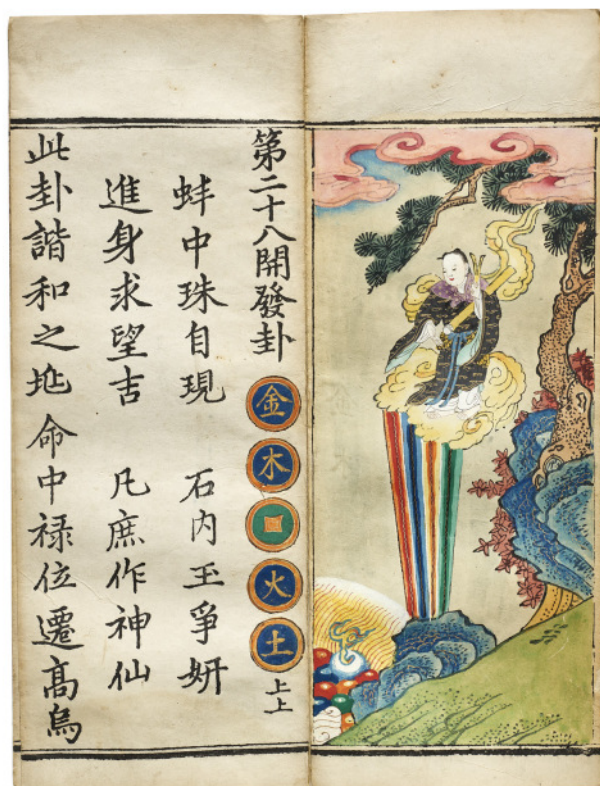 第二十八開發卦 金 木 火 土 上上
蚌中珠自現 石内玉爭妍
進身求望吉 凡庶作神仙
此卦諧和之 命中禄位遷高烏